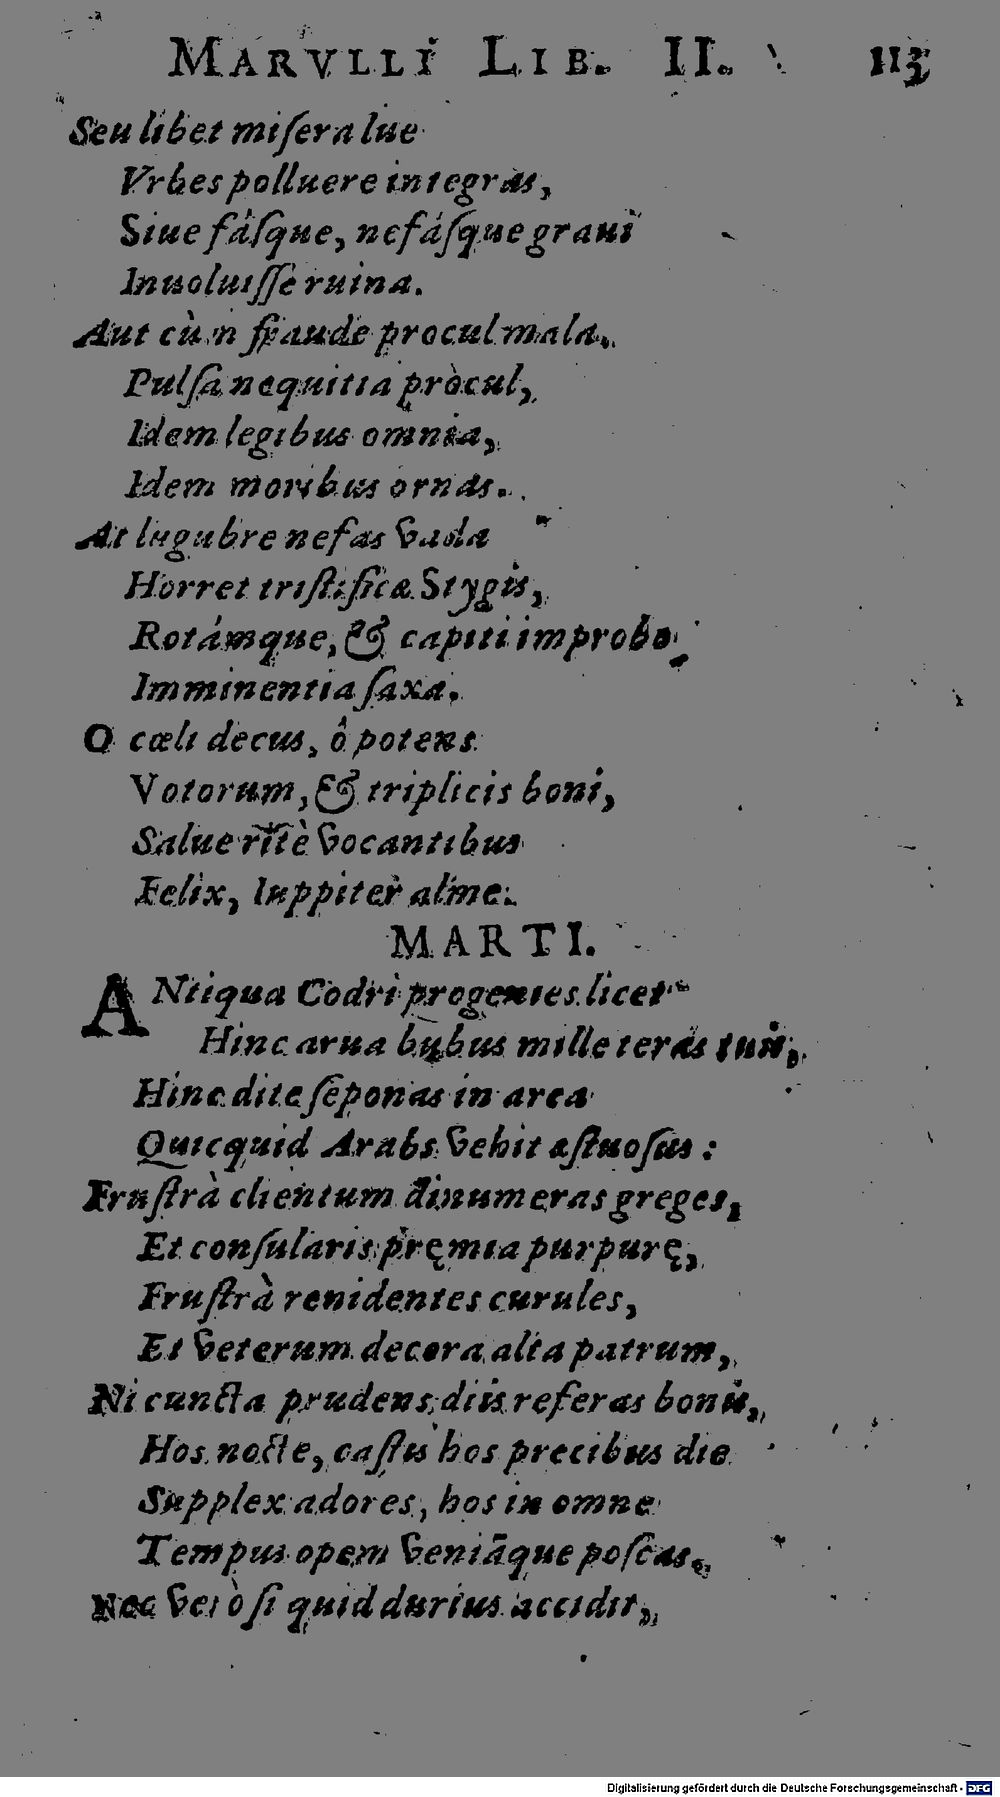 MARVLLI LIB. II. 113
Seu libet misera lue
Vrbes polluere integras,
Siue fásque, nefásque graui
Inuoluisse ruina.
Aut cùm fraude procul mala,
Pulsa nequitia procul,
Idem legibus omnia,
Idem moribus ornas.
At lugubre nefas vada
Horret tristificæ Stygis,
Rotámque, & capiti improbo
Imminentia saxa.
O cœli decus, ô potens
Votorum, & triplicis boni,
Salue ritè vocantibus
Felix, Iuppiter alme.
MARTI.
ANtiqua Codri progenies licet
Hinc arua bubus mille teras tuis,
Hinc dite seponas in arca
Quicquid Arabs vehit æstuosus:
Frustrà clientum dinumeras greges,
Et consularis pręmia purpurę,
Frustrà renidentes curules,
Et veterum decora alta patrum,
Ni cuncta prudens diis referas bonis,
Hos nocte, castis hos precibus die
Supplex adores, hos in omne
Tempus opem veniāque poscas.
Nec verò si quid durius accidit,
Digitalisierung gefördert durch die Deutsche Forschungsgemeinschaft - DFG